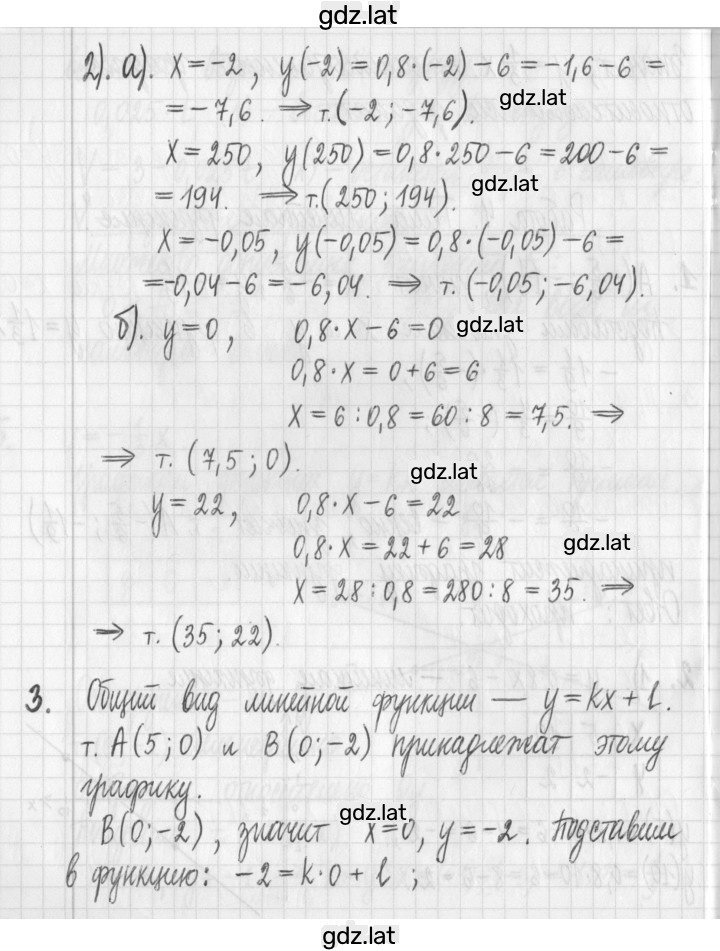 gdz.lat
2). а). x = -2, y(-2) = 0,8·(-2) - 6 = -1,6 - 6 =
= -7,6. ⇒ т.(-2; -7,6).
gdz.lat
x = 250, y(250) = 0,8·250 - 6 = 200 - 6 =
= 194. ⇒ т.(250; 194).
gdz.lat
x = -0,05, y(-0,05) = 0,8·(-0,05) - 6 =
= -0,04 - 6 = -6,04. ⇒ т. (-0,05; -6,04).
б). y = 0, 0,8·x - 6 = 0
gdz.lat
0,8·x = 0 + 6 = 6
x = 6 : 0,8 = 60 : 8 = 7,5. ⇒
⇒ т. (7,5; 0).
gdz.lat
y = 22, 0,8·x - 6 = 22
0,8·x = 22 + 6 = 28
gdz.lat
x = 28 : 0,8 = 280 : 8 = 35. ⇒
⇒ т. (35; 22).
3. Общий вид линейной функции — y = kx + l.
т. A(5; 0) и B(0; -2) принадлежат этому
графику.
gdz.lat
B(0; -2), значит x = 0, y = -2. Подставим
в функцию: -2 = k·0 + l ;
gdz.lat